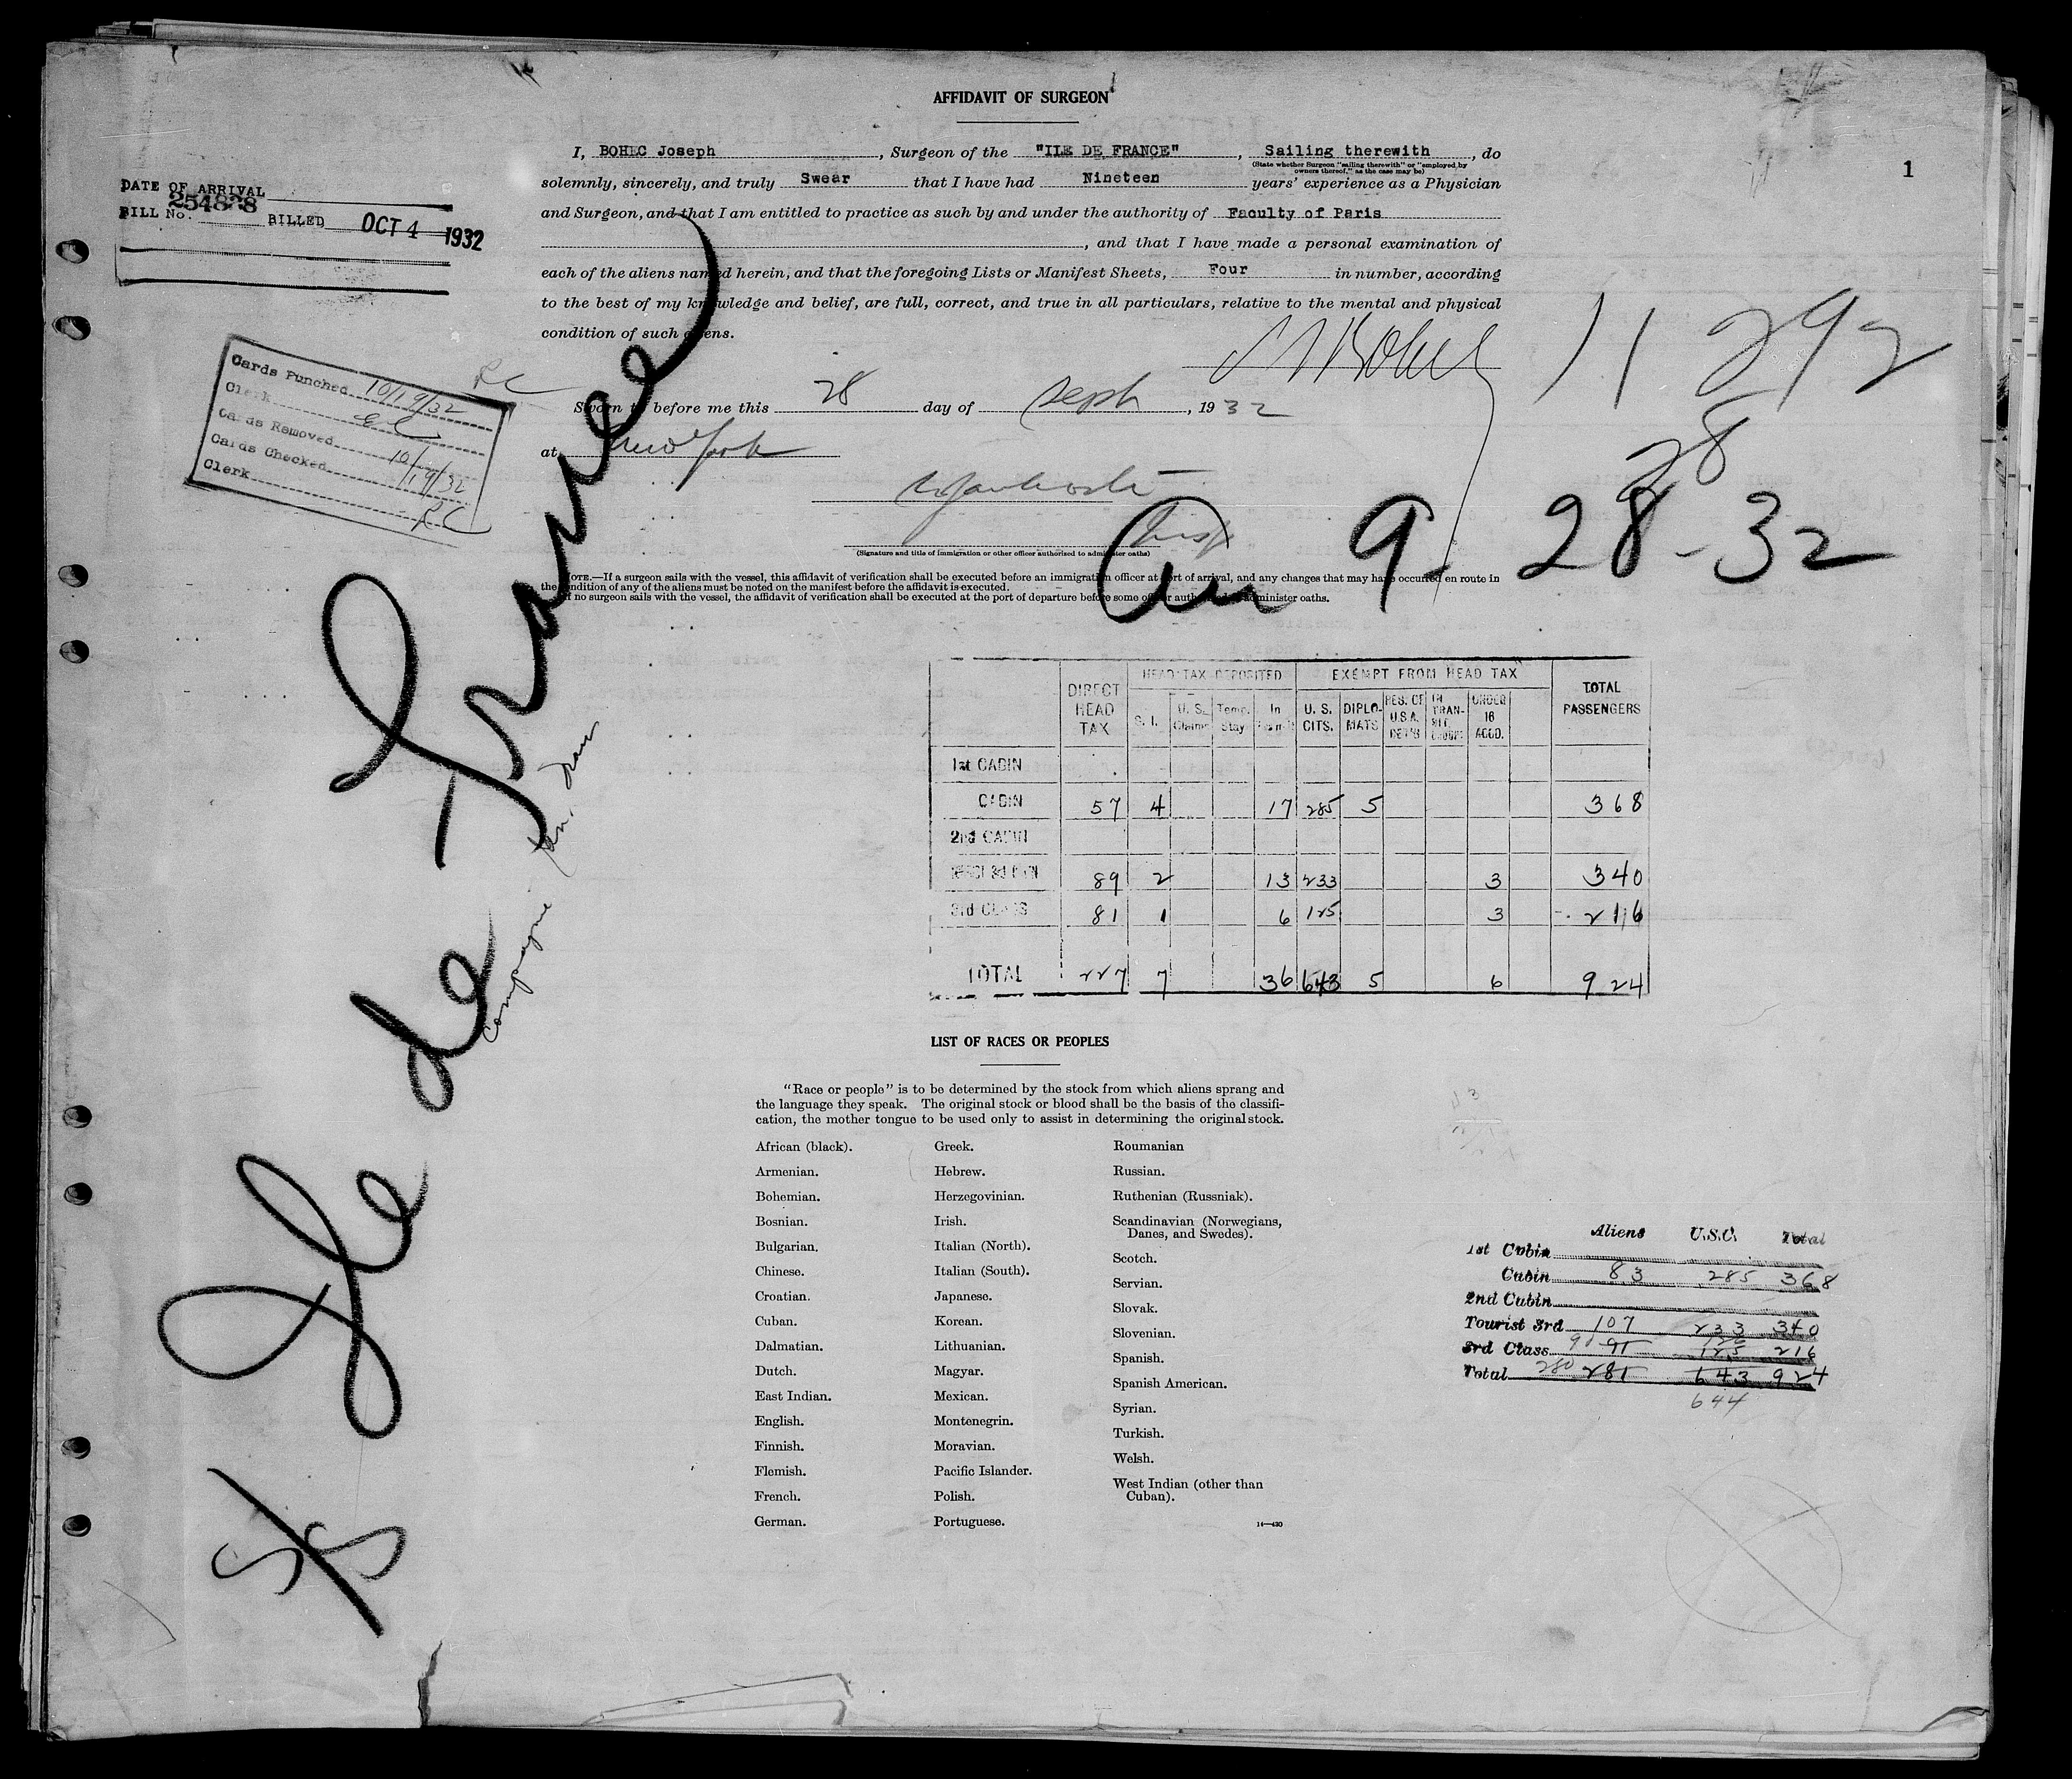 AFFIDAVIT OF SURGEON
1
I, BOHEC Joseph, Surgeon of the "ILE DE FRANCE", Sailing therewith, do
(State whether Surgeon "sailing therewith" or "employed by owners thereof," as the case may be)
solemnly, sincerely, and truly Swear that I have had Nineteen years' experience as a Physician
and Surgeon, and that I am entitled to practice as such by and under the authority of Faculty of Paris
, and that I have made a personal examination of
each of the aliens named herein, and that the foregoing Lists or Manifest Sheets, Four in number, according
to the best of my knowledge and belief, are full, correct, and true in all particulars, relative to the mental and physical
condition of such aliens.
Sworn to before me this 28 day of Sept, 1932
at New York
Insp
(Signature and title of immigration or other officer authorized to administer oaths)
NOTE.—If a surgeon sails with the vessel, this affidavit of verification shall be executed before an immigration officer at port of arrival, and any changes that may have occurred en route in
the condition of any of the aliens must be noted on the manifest before the affidavit is executed.
If no surgeon sails with the vessel, the affidavit of verification shall be executed at the port of departure before some officer authorized to administer oaths.
DATE OF ARRIVAL
254838
BILL No. BILLED OCT 4 1932
RC
Cards Punched 10/19/32
Clerk
Cards Removed
Cards Checked 10/19/32
Clerk RC
11 292
28
9-28-32
S/S Ile de France
HEAD TAX DEPOSITED EXEMPT FROM HEAD TAX
DIRECT HEAD TAX S. I. U. S. Claims Temp. Stay In Transit U. S. CITS. DIPLOMATS RES. OF U.S.A. RET'G IN TRANSIT GROUPS UNDER 16 ACCO. TOTAL PASSENGERS
1st CABIN
CABIN 57 4 17 285 5 368
2nd CABIN
TOURIST 3rd CABIN 89 2 13 233 3 340
3rd CLASS 81 1 6 125 3 216
TOTAL 227 7 36 643 5 6 924
LIST OF RACES OR PEOPLES
"Race or people" is to be determined by the stock from which aliens sprang and
the language they speak. The original stock or blood shall be the basis of the classifi-
cation, the mother tongue to be used only to assist in determining the original stock.
African (black).
Armenian.
Bohemian.
Bosnian.
Bulgarian.
Chinese.
Croatian.
Cuban.
Dalmatian.
Dutch.
East Indian.
English.
Finnish.
Flemish.
French.
German.
Greek.
Hebrew.
Herzegovinian.
Irish.
Italian (North).
Italian (South).
Japanese.
Korean.
Lithuanian.
Magyar.
Mexican.
Montenegrin.
Moravian.
Pacific Islander.
Polish.
Portuguese.
Roumanian
Russian.
Ruthenian (Russniak).
Scandinavian (Norwegians,
Danes, and Swedes).
Scotch.
Servian.
Slovak.
Slovenian.
Spanish.
Spanish American.
Syrian.
Turkish.
Welsh.
West Indian (other than
Cuban).
14—430
Aliens U.S.C. Total
1st Cabin
Cabin 83 285 368
2nd Cabin
Tourist 3rd 107 233 340
3rd Class 90 91 126 125 216
Total 280 281 643 924
644